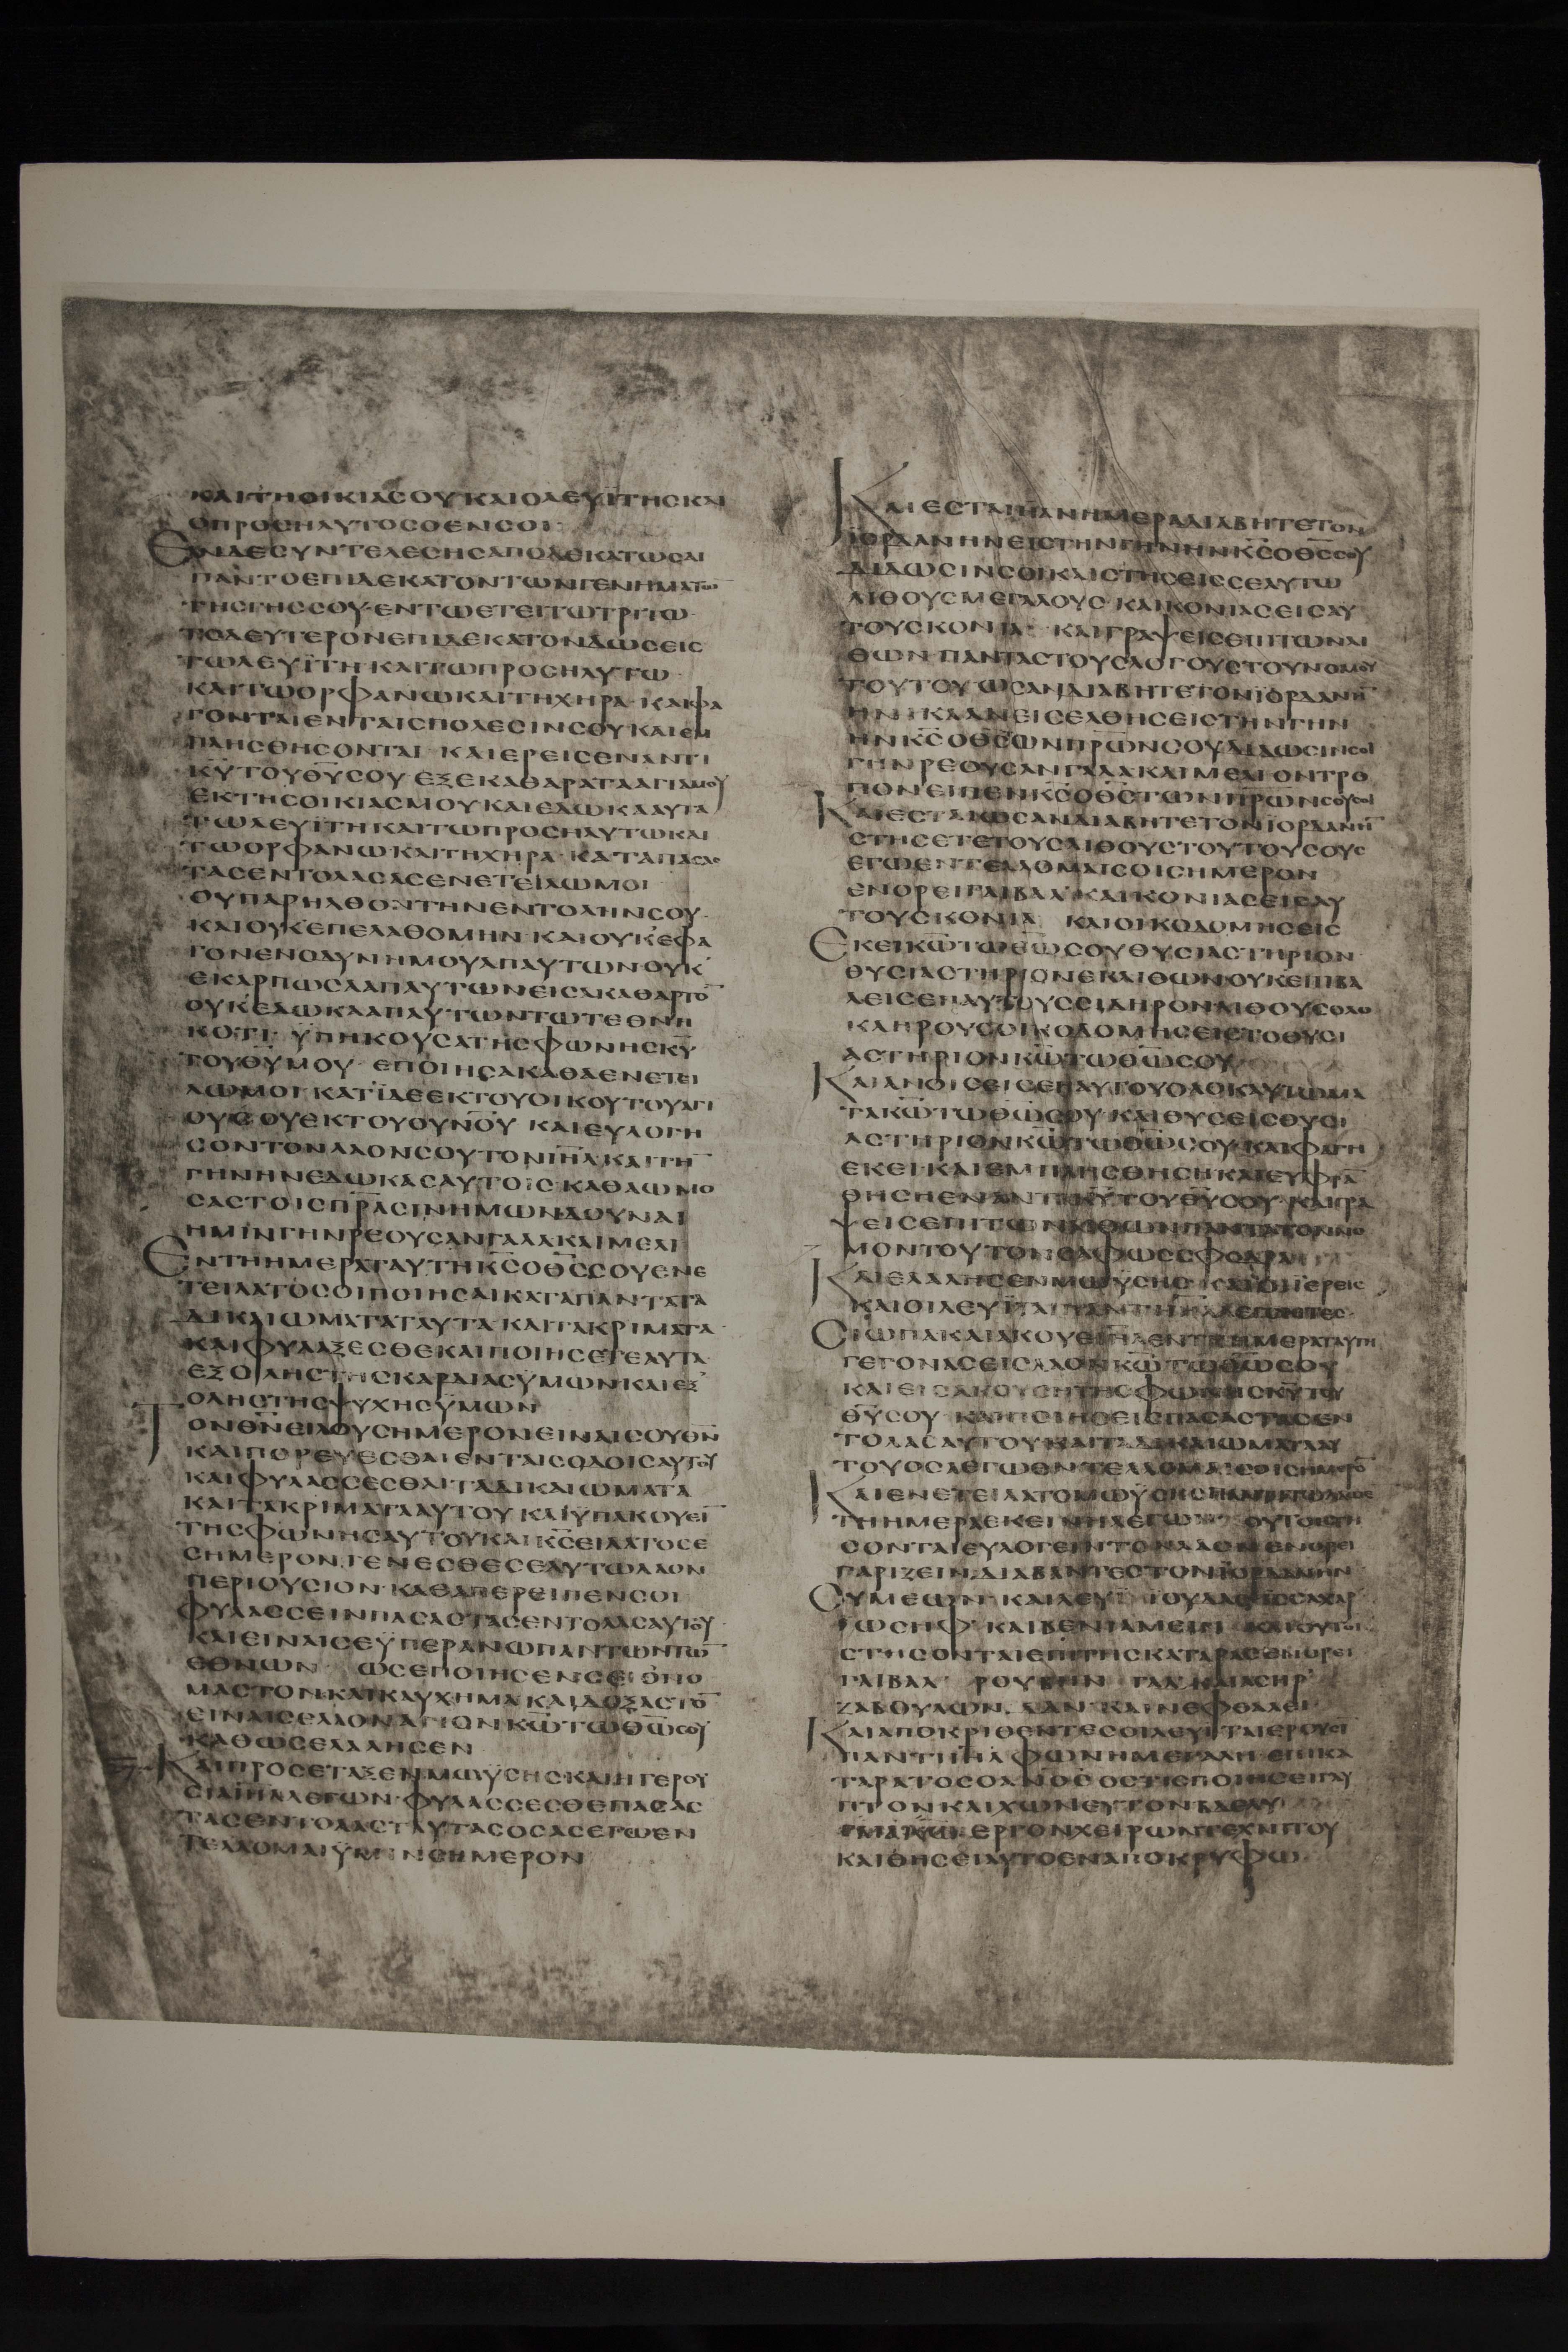 ΚΑΙΤΗΟΙΚΙΑΣΟΥΚΑΙΟΛΕΥΪΤΗΣΚΑΙ
ΟΠΡΟΣΗΛΥΤΟΣΟΕΝΣΟΙ·
ΕΑΝΔΕΣΥΝΤΕΛΕΣΗΣΑΠΟΔΕΚΑΤΩΣΑΙ
ΠΑΝΤΟΕΠΙΔΕΚΑΤΟΝΤΩΝΓΕΝΗΜΑΤΩ̅
ΤΗΣΓΗΣΣΟΥ·ΕΝΤΩΕΤΕΙΤΩΤΡΙΤΩ·
ΤΟΔΕΥΤΕΡΟΝΕΠΙΔΕΚΑΤΟΝΔΩΣΕΙΣ
ΤΩΛΕΥΪΤΗΚΑΙΤΩΠΡΟΣΗΛΥΤΩ
ΚΑΙΤΩΟΡΦΑΝΩΚΑΙΤΗΧΗΡΑ·ΚΑΙΦΑ
ΓΟΝΤΑΙΕΝΤΑΙΣΠΟΛΕΣΙΝΣΟΥΚΑΙΕΜ
ΠΛΗΣΘΗΣΟΝΤΑΙ ΚΑΙΕΡΕΙΣΕΝΑΝΤΙ
Κ̅Υ̅ΤΟΥΘ̅Υ̅ΣΟΥ·ΕΞΕΚΑΘΑΡΑΤΑΑΓΙΑΜΟΥ
ΕΚΤΗΣΟΙΚΙΑΣΜΟΥΚΑΙΕΔΩΚΑΑΥΤΑ
ΤΩΛΕΥΪΤΗΚΑΙΤΩΠΡΟΣΗΛΥΤΩΚΑΙ
ΤΩΟΡΦΑΝΩΚΑΙΤΗΧΗΡΑ·ΚΑΤΑΠΑΣΑΣ
ΤΑΣΕΝΤΟΛΑΣΑΣΕΝΕΤΕΙΛΩΜΟΙ
ΟΥΠΑΡΗΛΘΟΝΤΗΝΕΝΤΟΛΗΝΣΟΥ·
ΚΑΙΟΥΚΕΠΕΛΑΘΟΜΗΝ·ΚΑΙΟΥΚΕΦΑ
ΓΟΝΕΝΟΔΥΝΗΜΟΥΑΠΑΥΤΩΝΟΥΚ
ΕΚΑΡΠΩΣΑΑΠΑΥΤΩΝΕΙΣΑΚΑΘΑΡΤΟ̅
ΟΥΚΕΔΩΚΑΑΠΑΥΤΩΝΤΩΤΕΘΝΗ
ΚΟΤΙ· ΥΠΗΚΟΥΣΑΤΗΣΦΩΝΗΣΚ̅Υ̅
ΤΟΥΘ̅Υ̅ΜΟΥ·ΕΠΟΙΗΣΑΚΑΘΑΕΝΕΤΕΙ
ΛΩΜΟΙ·ΚΑΤΪΔΕΕΚΤΟΥΟΙΚΟΥΤΟΥΑΓΙ
ΟΥΣΟΥΕΚΤΟΥΟΥ̅Ν̅Ο̅Υ̅ ΚΑΙΕΥΛΟΓΗ
ΣΟΝΤΟΝΛΑΟΝΣΟΥΤΟΝΙ̅Η̅Λ̅ΚΑΙΤΗ̅
ΓΗΝΗΝΕΔΩΚΑΣΑΥΤΟΙΣ·ΚΑΘΑΩΜΟ
ΣΑΣΤΟΙΣΠ̅Ρ̅ΑΣΙΝΗΜΩΝΔΟΥΝΑΙ
ΗΜΙΝΓΗΝΡΕΟΥΣΑΝΓΑΛΑΚΑΙΜΕΛΙ
ΕΝΤΗΗΜΕΡΑΤΑΥΤΗΚ̅Σ̅ΟΘ̅Σ̅ΣΟΥΕΝΕ
ΤΕΙΛΑΤΟΣΟΙΠΟΙΗΣΑΙΚΑΤΑΠΑΝΤΑΤΑ
ΔΙΚΑΙΩΜΑΤΑΤΑΥΤΑΚΑΙΤΑΚΡΙΜΑΤΑ·
ΚΑΙΦΥΛΑΞΕΣΘΕΚΑΙΠΟΙΗΣΕΤΕΑΥΤΑ
ΕΞΟΛΗΣΤΗΣΚΑΡΔΙΑΣΥΜΩΝΚΑΙΕΞ
ΟΛΗΣΤΗΣΨΥΧΗΣΥΜΩΝ
ΤΟΝΘ̅Ν̅ΕΙΛΟΥΣΗΜΕΡΟΝΕΙΝΑΙΣΟΥΘ̅Ν̅
ΚΑΙΠΟΡΕΥΕΣΘΑΙΕΝΤΑΙΣΟΔΟΙΣΑΥΤΟΥ
ΚΑΙΦΥΛΑΣΣΕΣΘΑΙΤΑΔΙΚΑΙΩΜΑΤΑ
ΚΑΙΤΑΚΡΙΜΑΤΑΑΥΤΟΥ·ΚΑΙΫΠΑΚΟΥΕΙ̅
ΤΗΣΦΩΝΗΣΑΥΤΟΥΚΑΙΚ̅Σ̅ΕΙΛΑΤΟΣΕ
ΣΗΜΕΡΟΝ.ΓΕΝΕΣΘΕΣΕΑΥΤΩΛΑΟΝ
ΠΕΡΙΟΥΣΙΟΝ·ΚΑΘΑΠΕΡΕΙΠΕΝΣΟΙ
ΦΥΛΑΣΣΕΙΝΠΑΣΑΣΤΑΣΕΝΤΟΛΑΣΑΥΤΟΥ·
ΚΑΙΕΙΝΑΙΣΕΫΠΕΡΑΝΩΠΑΝΤΩΝΤΩ̅
ΕΘΝΩΝ· ΩΣΕΠΟΙΗΣΕΝΣΕ ΟΝΟ
ΜΑΣΤΟΝΚΑΙΚΑΥΧΗΜΑΚΑΙΔΟΞΑΣΤΟ̅
ΕΙΝΑΙΣΕΛΑΟΝΑΓΙΟΝΚ̅Ω̅ΤΩΘ̅Ω̅ΣΟΥ
ΚΑΘΩΣΕΛΑΛΗΣΕΝ
ΚΑΙΠΡΟΣΕΤΑΞΕΝΜΩΥΣΗΣΚΑΙΗΓΕΡΟΥ
ΣΙΑΙ̅Η̅Λ̅ΛΕΓΩΝ·ΦΥΛΑΣΣΕΣΘΕΠΑΣΑΣ
ΤΑΣΕΝΤΟΛΑΣΤΑΥΤΑΣΟΣΑΣΕΓΩΕΝ
ΤΕΛΛΟΜΑΙΫΜΙΝΣΗΜΕΡΟΝ
ΚΑΙΕΣΤΑΙΗΑΝΗΜΕΡΑΔΙΑΒΗΤΕΤΟΝ
ΪΟΡΔΑΝΗΝΕΙΣΤΗΝΓΗΝΗΝΚ̅Σ̅ΟΘ̅Σ̅ΣΟΥ
ΔΙΔΩΣΙΝΣΟΙ·ΚΑΙΣΤΗΣΕΙΣΣΕΑΥΤΩ
ΛΙΘΟΥΣΜΕΓΑΛΟΥΣ·ΚΑΙΚΟΝΙΑΣΕΙΣΑΥ
ΤΟΥΣΚΟΝΙΑ· ΚΑΙΓΡΑΨΕΙΣΕΠΙΤΩΝΛΙ
ΘΩΝ·ΠΑΝΤΑΣΤΟΥΣΛΟΓΟΥΣΤΟΥΝΟΜΟΥ
ΤΟΥΤΟΥΩΣΑΝΔΙΑΒΗΤΕΤΟΝΪΟΡΔΑΝΗ̅
ΗΝΙΚΑΑΝΕΙΣΕΛΘΗΣΕΙΣΤΗΝΓΗΝ
ΗΝΚ̅Σ̅ΟΘ̅Σ̅ΤΩΝΠ̅Ρ̅Ω̅Ν̅ΣΟΥΔΙΔΩΣΙΝΣΟΙ
ΓΗΝΡΕΟΥΣΑΝΓΑΛΑΚΑΙΜΕΛΙ·ΟΝΤΡΟ
ΠΟΝΕΙΠΕΝΚ̅Σ̅ΟΘ̅Σ̅ΤΩΝΠ̅Ρ̅Ω̅Ν̅ΣΟΥΣΟΙ
ΚΑΙΕΣΤΑΙΩΣΑΝΔΙΑΒΗΤΕΤΟΝΪΟΡΔΑΝΗ̅
ΣΤΗΣΕΤΕΤΟΥΣΛΙΘΟΥΣΤΟΥΤΟΥΣΟΥΣ
ΕΓΩΕΝΤΕΛΛΟΜΑΙΣΟΙΣΗΜΕΡΟΝ
ΕΝΟΡΕΙΓΑΙΒΑΛ·ΚΑΙΚΟΝΙΑΣΕΙΣΑΥ
ΤΟΥΣΚΟΝΙΑ ΚΑΙΟΙΚΟΔΟΜΗΣΕΙΣ
ΕΚΕΙΚ̅Ω̅ΤΩΘ̅Ω̅ΣΟΥΘΥΣΙΑΣΤΗΡΙΟΝ·
ΘΥΣΙΑΣΤΗΡΙΟΝΕΚΛΙΘΩΝΟΥΚΕΠΙΒΑ
ΛΕΙΣΕΠΑΥΤΟΥΣΣΙΔΗΡΟΝΛΙΘΟΥΣΟΛΟ
ΚΛΗΡΟΥΣΟΙΚΟΔΟΜΗΣΕΙΣΤΟΘΥΣΙ
ΑΣΤΗΡΙΟΝΚ̅Ω̅ΤΩΘ̅Ω̅ΣΟΥ
ΚΑΙΑΝΟΙΣΕΙΣΕΠΑΥΤΟΥΟΛΟΚΑΥΤΩΜΑ
ΤΑΚ̅Ω̅ΤΩΘ̅Ω̅ΣΟΥ·ΚΑΙΘΥΣΕΙΣΘΥΣΙ
ΑΣΤΗΡΙΟΝΚ̅Ω̅ΤΩΘ̅Ω̅ΣΟΥ·ΚΑΙΦΑΓΗ
ΕΚΕΙ·ΚΑΙΕΜΠΛΗΣΘΗΣΗΚΑΙΕΥΦΡΑ̅
ΘΗΣΗΕΝΑΝΤΙΚ̅Υ̅ΤΟΥΘ̅Υ̅ΣΟΥ·ΚΑΙΓΡΑ
ΨΕΙΣΕΠΙΤΩΝΛΙΘΩΝΠΑΝΤΑΤΟΝΝΟ
ΜΟΝΤΟΥΤΟΝΣΑΦΩΣΣΦΟΔΡΑ
ΚΑΙΕΛΑΛΗΣΕΝΜΩΥΣΗΣ ΚΑΙΟΙΪΕΡΕΙΣ
ΚΑΙΟΙΛΕΥΪΤΑΙΠΑΝΤΙΙ̅Η̅Λ̅ΛΕΓΟΝΤΕΣ·
ΣΙΩΠΑΚΑΙΑΚΟΥΕΙ̅Η̅Λ̅ΕΝΤΗΗΜΕΡΑΤΑΥΤΗ
ΓΕΓΟΝΑΣΕΙΣΛΑΟΝΚ̅Ω̅ΤΩΘ̅Ω̅ΣΟΥ
ΚΑΙΕΙΣΑΚΟΥΣΗΤΗΣΦΩΝΗΣΚ̅Υ̅ΤΟΥ
Θ̅Υ̅ΣΟΥ ΚΑΙΠΟΙΗΣΕΙΣΠΑΣΑΣΤΑΣΕΝ
ΤΟΛΑΣΑΥΤΟΥΚΑΙΤΑΔΙΚΑΙΩΜΑΤΑΑΥ
ΤΟΥΟΣΑΕΓΩΕΝΤΕΛΛΟΜΑΙΣΟΙΣΗΜΕΡΟ̅
ΚΑΙΕΝΕΤΕΙΛΑΤΟΜΩΥΣΗΣ
ΤΗΗΜΕΡΑΕΚΕΙΝΗΛΕΓΩΝ ΟΥΤΟΙΣΤΗ
ΣΟΝΤΑΙΕΥΛΟΓΕΙΝΤΟΝΛΑΟΝΕΝΟΡΕΙ
ΓΑΡΙΖΕΙΝ.ΔΙΑΒΑΝΤΕΣΤΟΝΪΟΡΔΑΝΗΝ
ΣΥΜΕΩΝ·ΚΑΙΛΕΥΪ ΪΟΥΔΑΣΪΣΣΑΧΑΡ
ΪΩΣΗΦ·ΚΑΙΒΕΝΙΑΜΕΙΝ ΚΑΙΟΥΤΟΙ
ΣΤΗΣΟΝΤΑΙΕΠΙΤΗΣΚΑΤΑΡΑΣΕΝΟΡΕΙ
ΓΑΙΒΑΛ· ΡΟΥΒΗΝ ΓΑΔ·ΚΑΙΑΣΗΡ
ΖΑΒΟΥΛΩΝ. ΔΑΝ·ΚΑΙΝΕΦΘΑΛΕΙ·
ΚΑΙΑΠΟΚΡΙΘΕΝΤΕΣΟΙΛΕΥΪΤΑΙΕΡΟΥΣΙ̅
ΠΑΝΤΙΙ̅Η̅Λ̅ΦΩΝΗΜΕΓΑΛΗ·ΕΠΙΚΑ
ΤΑΡΑΤΟΣΟΑ̅Ν̅Ο̅Σ̅ΟΣΤΙΣΠΟΙΗΣΕΙΓΛΥ
ΠΤΟΝΚΑΙΧΩΝΕΥΤΟΝΒΔΕΛΥ
ΓΜΑΚ̅Ω̅ ΕΡΓΟΝΧΕΙΡΩΝΤΕΧΝΙΤΟΥ
ΚΑΙΘΗΣΕΙΑΥΤΟΕΝΑΠΟΚΡΥΦΩ